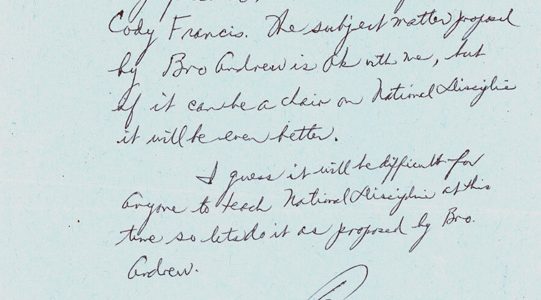 Cody Francis. The subject matter proposed
by Bro Andrew is ok with me, but
if it can be a chair on National Discipline
it will be even better.
I guess it will be difficult for
anyone to teach National Discipline at this
time so lets do it as proposed by Bro.
Andrew.